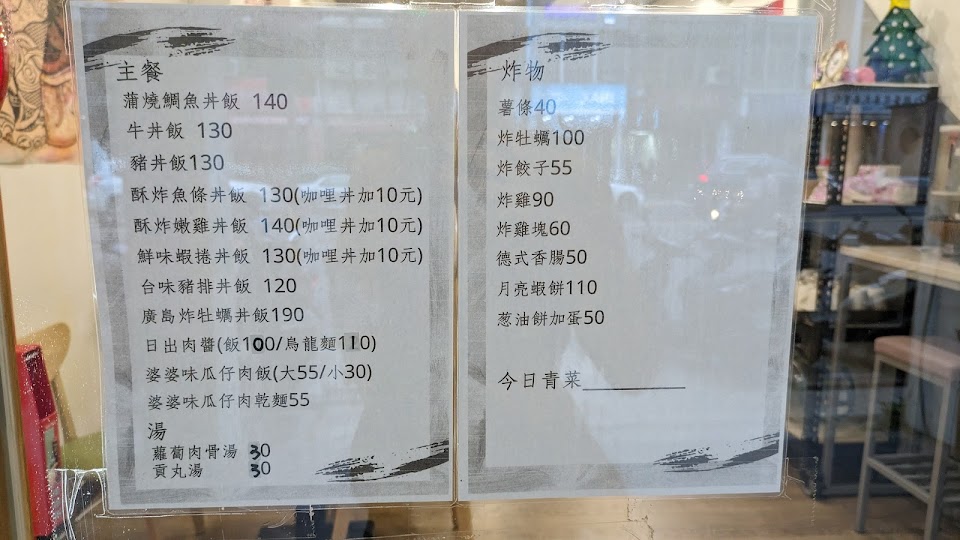 主餐
蒲燒鯛魚丼飯 140
牛丼飯 130
豬丼飯130
酥炸魚條丼飯 130(咖哩丼加10元)
酥炸嫩雞丼飯 140(咖哩丼加10元)
鮮味蝦捲丼飯 130(咖哩丼加10元)
台味豬排丼飯 120
廣島炸牡蠣丼飯190
日出肉醬(飯100/烏龍麵110)
婆婆味瓜仔肉飯(大55/小30)
婆婆味瓜仔肉乾麵55
湯
蘿蔔肉骨湯 30
貢丸湯 30
炸物
薯條40
炸牡蠣100
炸餃子55
炸雞90
炸雞塊60
德式香腸50
月亮蝦餅110
葱油餅加蛋50
今日青菜__________